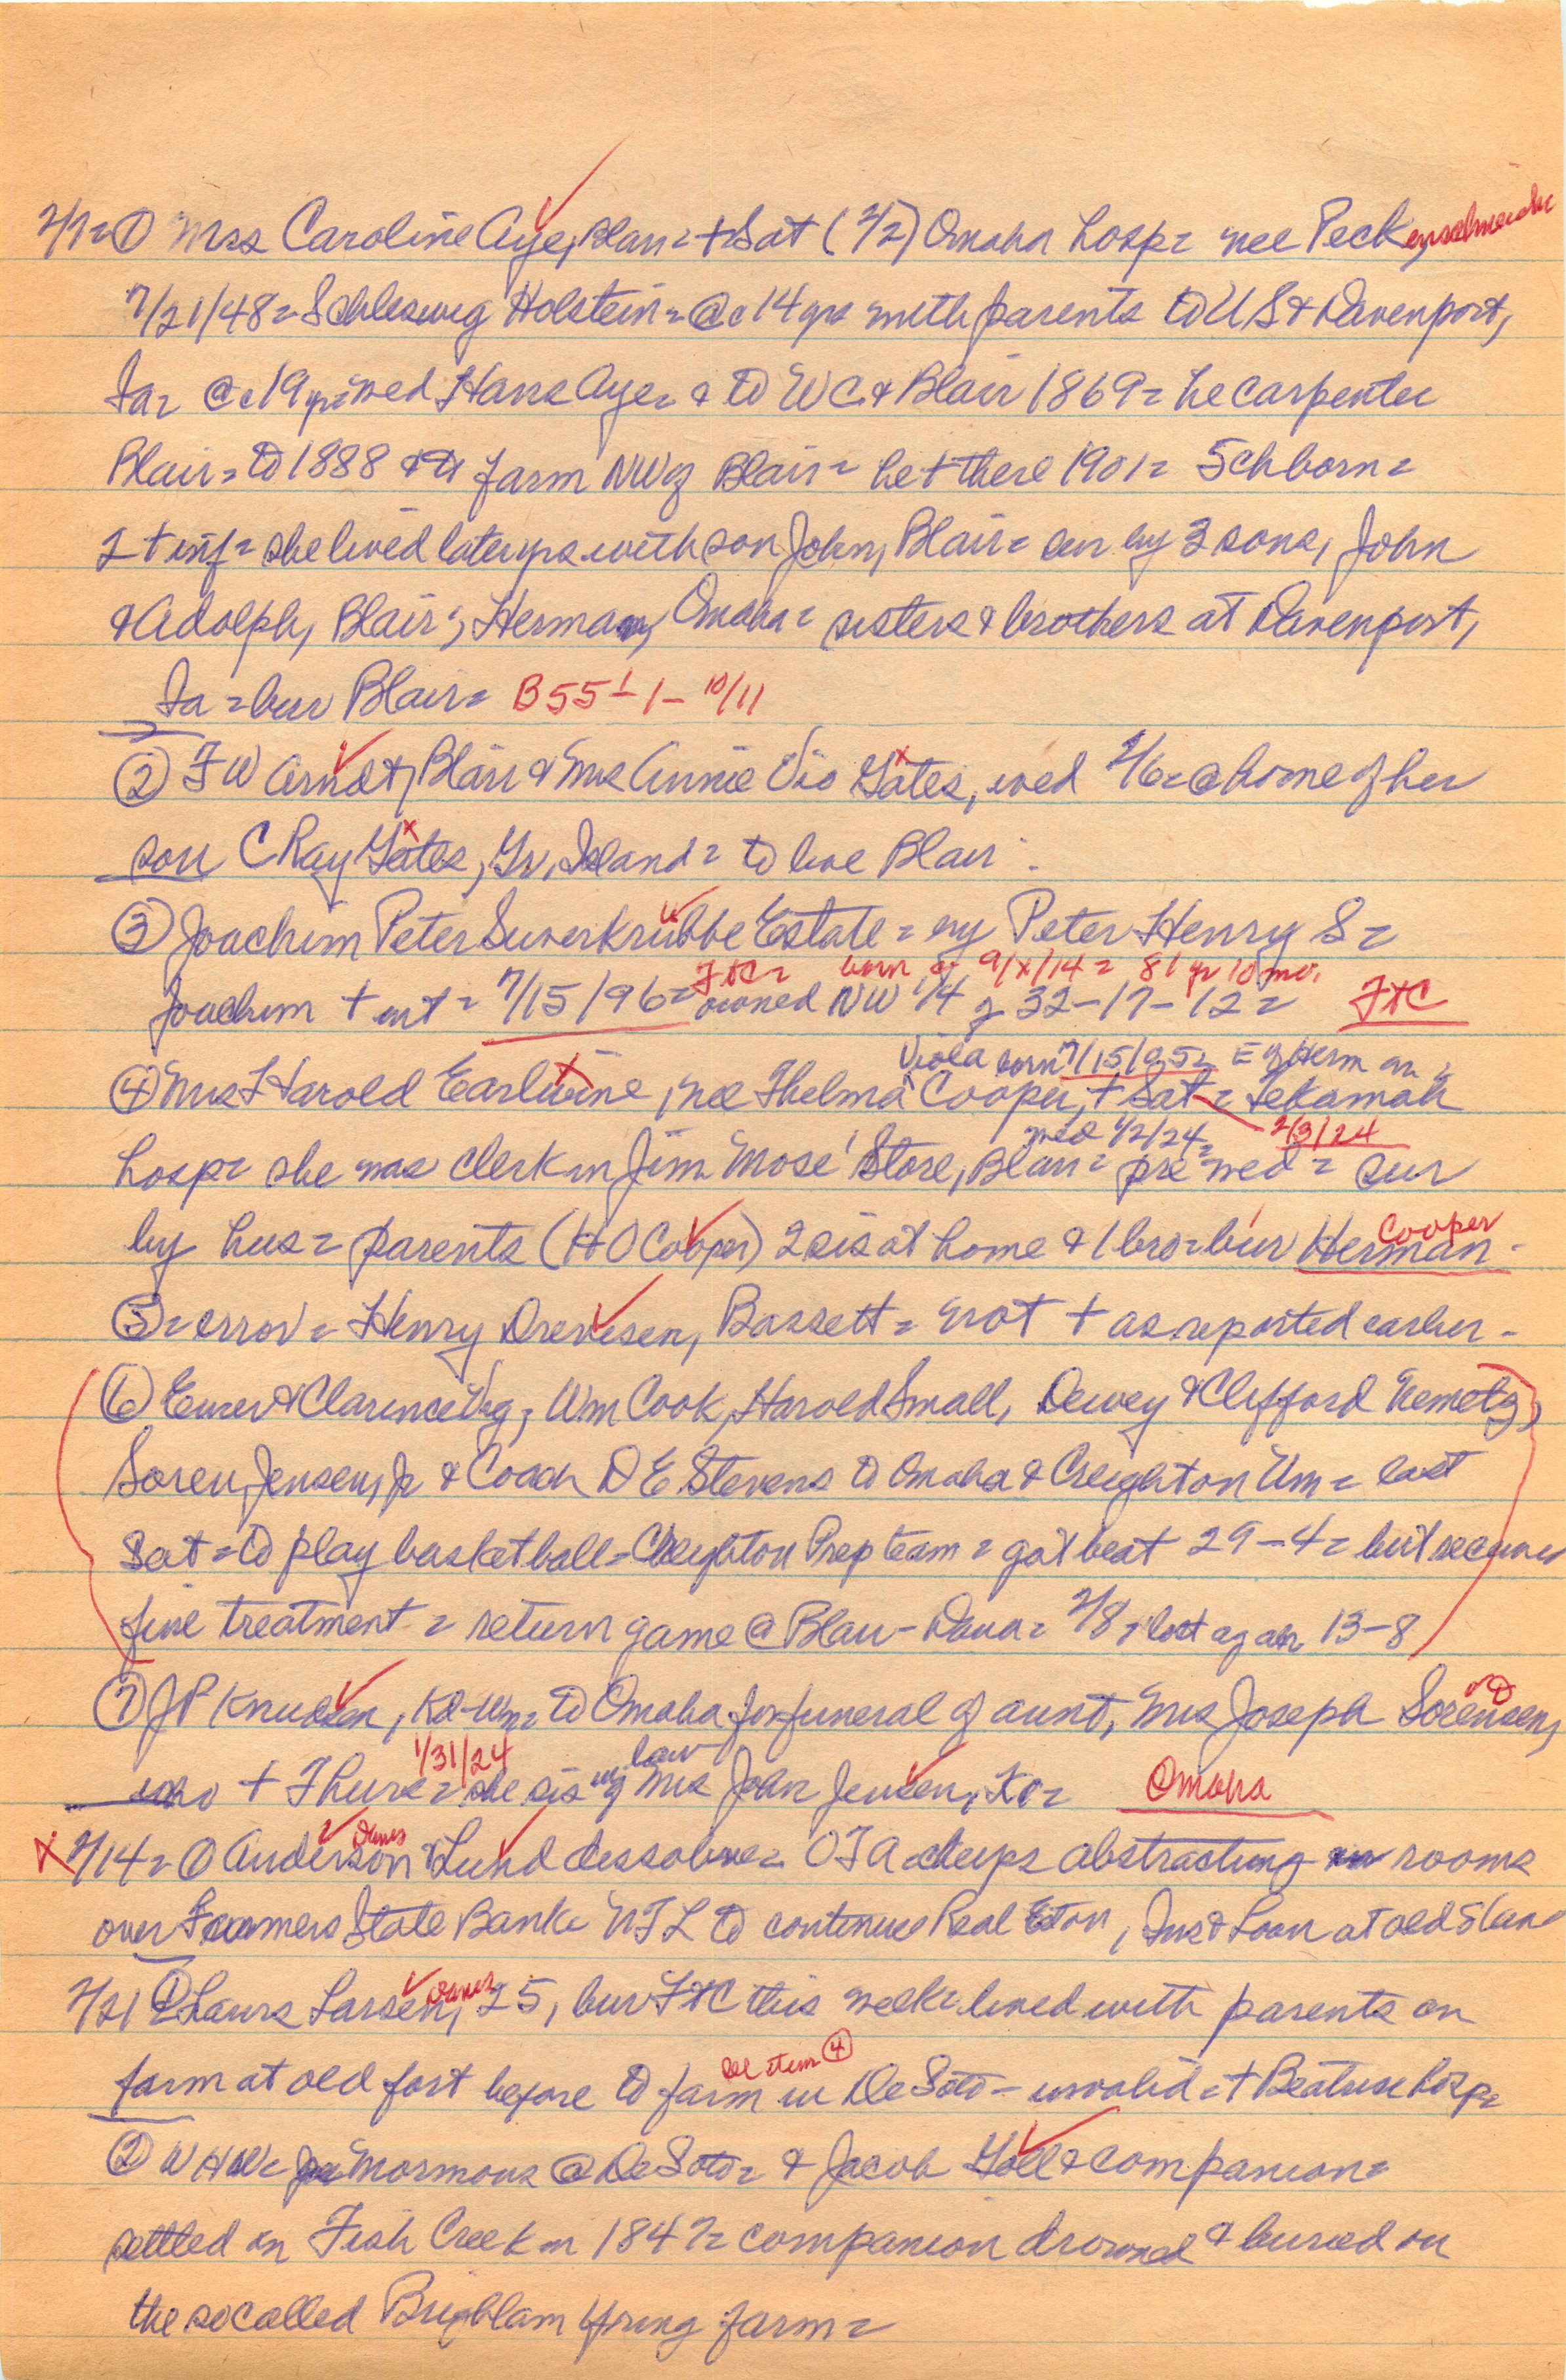 2/7= ① Mrs Caroline Aye, Blair = + Sat (2/2) Omaha hosp = nee Peckenschneider
7/21/48 = Schleswig Holstein = @ c 14 yrs with parents to US & Davenport,
Ia = @ c 19 yr = wed Hans Aye = & to WC & Blair 1869 = he carpenter
Blair = to 1888 & to farm NW of Blair = he + there 1901 = 5 ch born =
2 + inf = she lived later yrs with son John, Blair = sur by 3 sons, John
& Adolph, Blair; Herman, Omaha = sisters & brothers at Davenport,
Ia = bur Blair = B55-1-10/11
② F W Arndt, Blair & Mrs Annie Vio Gates, wed 2/6 = @ home of her
son C Ray Gates, Gr. Island = to live Blair.
③ Joachim Peter Suverkrubbe Estate = by Peter Henry S =
FtC = born 9/x/14 = 81 yr 10 mo.
Joachim + int = 7/15/96 = owned NW 1/4 of 32-17-12 = FtC
Viola born 7/15/05 = E of Herman =
④ Mrs Harold Earlwine, nee Thelma Cooper, + Sat = Tekamah
wed 1/2/24 = 2/3/24
hosp = she was clerk in Jim Mose' Store, Blair = pre wed = sur
by hus = parents (H O Cooper) 2 sis at home & 1 bro = bur Herman - Cooper
⑤ = error = Henry Drevesen, Bassett = not + as reported earlier -
⑥ & Clarence Vig, Wm Cook, Harold Small, Dewey & Clifford Nemetz,
Soren Jensen, Jr & Coach D E Stevens to Omaha & Creighton Um = last
Sat = to play basketball = Creighton Prep team = got beat 29-4 = but received
fine treatment = return game @ Blair - Dana = 2/8, lost again 13-8
⑦ J P Knudsen, Kd-Wm = to Omaha for funeral of aunt, Mrs Joseph Sorensen,
1/31/24 law
who + Thurs = she sis of Mrs John Jensen, Kd = Omaha
X 2/14 = ① Anderson & Lund dissolve = O F A keeps abstracting in rooms
Danes
over Farmers State Bank = N F L to continue Real Eston, Ins & Loan at old stand
2/21 ① Laurs Larsen, 25, bur FtC this week = lived with parents on
Danes
See item ④
farm at old fort before to farm in DeSoto - invalid = + Beatrice hosp =
② W H W = Mormons @ DeSoto = & Jacob Goll & companion =
settled on Fish Creek in 1847 = companion drowned & buried on
the so called Brigham Young farm =